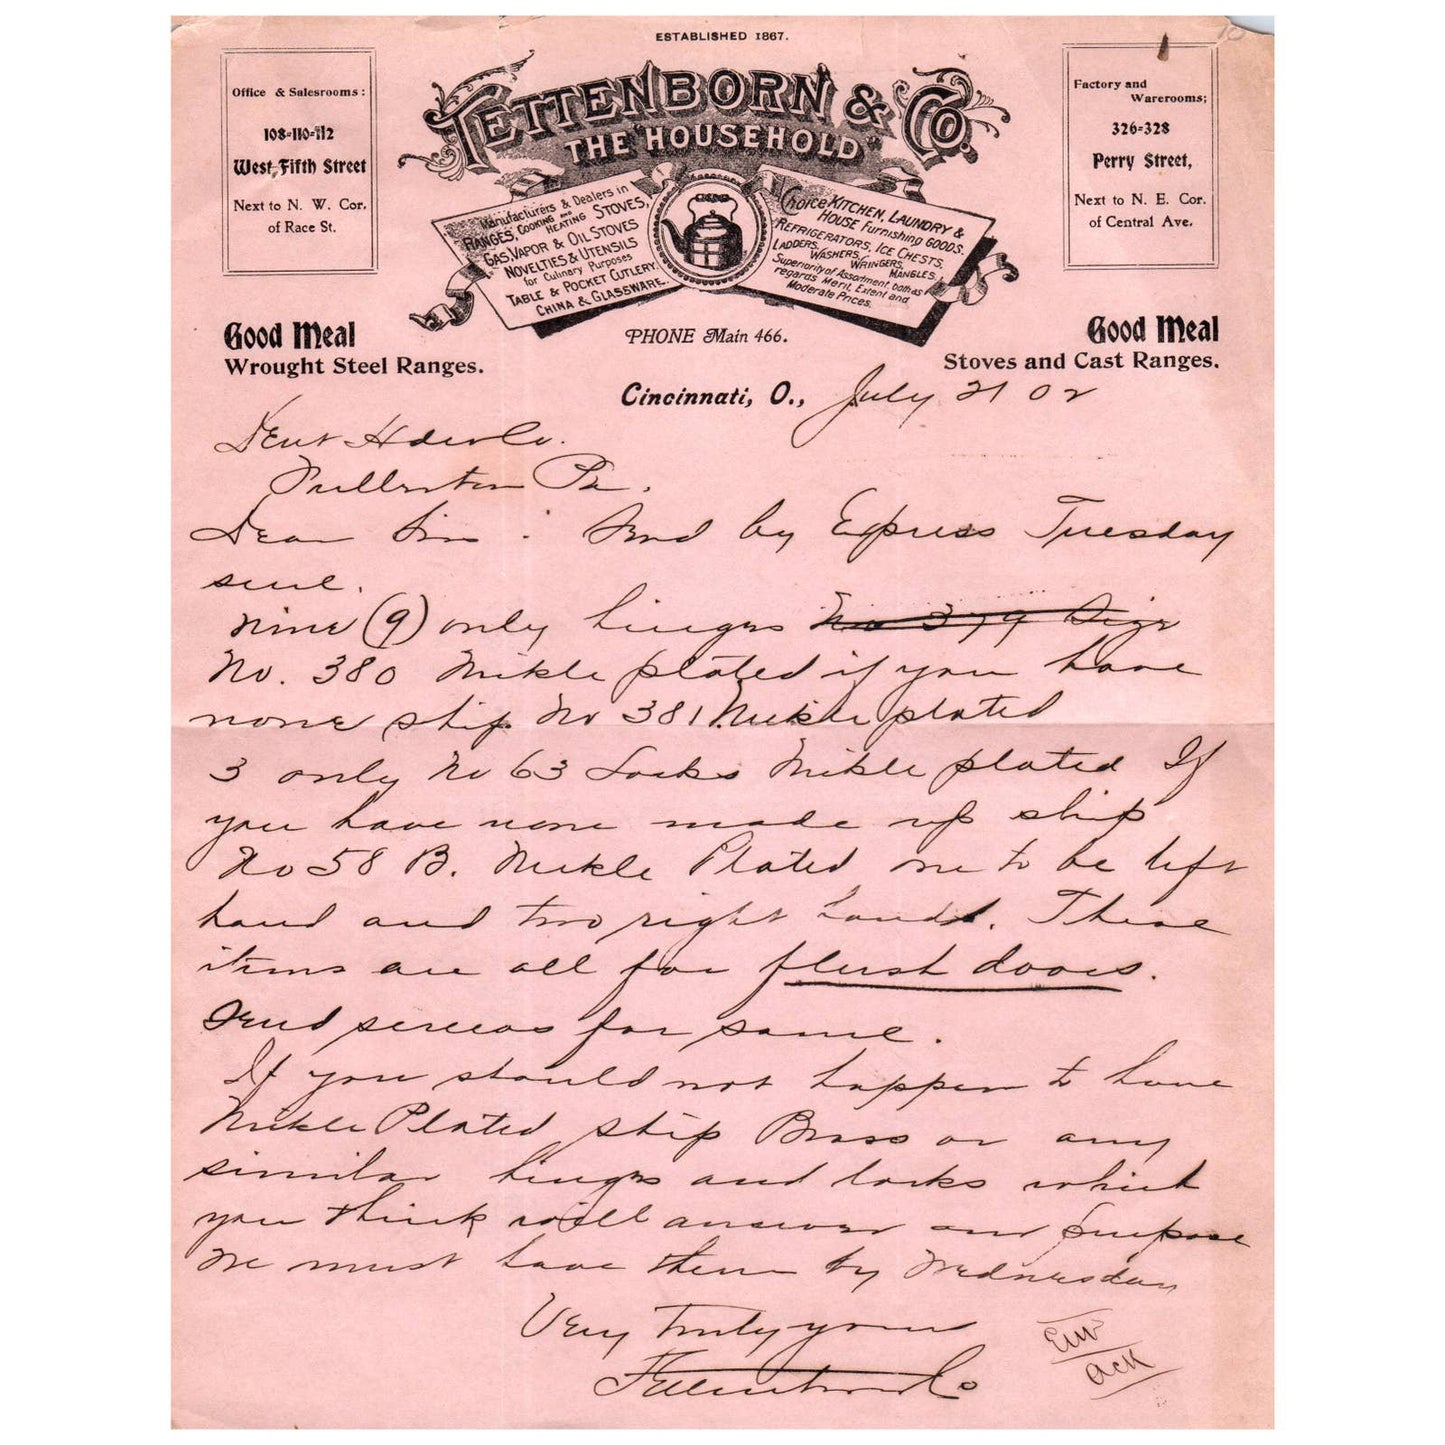 ESTABLISHED 1867.
TETTENBORN & Co.
THE "HOUSEHOLD"
Office & Salesrooms:
108=110=112
West Fifth Street
Next to N. W. Cor.
of Race St.
Factory and
Warerooms;
326=328
Perry Street,
Next to N. E. Cor.
of Central Ave.
Manufacturers & Dealers in
RANGES, COOKING AND HEATING STOVES,
GAS, VAPOR & OIL STOVES
NOVELTIES & UTENSILS
for Culinary Purposes
TABLE & POCKET CUTLERY.
CHINA & GLASSWARE.
Choice KITCHEN, LAUNDRY &
HOUSE Furnishing GOODS.
REFRIGERATORS, ICE CHESTS,
LADDERS, WASHERS, WRINGERS, MANGLES.
Superiority of Assortment, both as
regards Merit, Extent and
Moderate Prices.
Good Meal
Wrought Steel Ranges.
PHONE Main 466.
Good Meal
Stoves and Cast Ranges.
Cincinnati, O., July 21 02
Co.
Fullerton Pa.
Dear Sirs: Send by Express Tuesday
sure.
Nine (9) only hinges No 379 Size
No. 380 Nikle plated if you have
none ship No 381 Nikle plated
3 only No 63 Locks Nikle plated If
you have none made up ship
No 58 B. Nikle Plated one to be left
hand and two right hand. These
items are all for flush doors.
Send screws for same.
If you should not happen to have
Nikle Plated ship Brass or any
similar hinges and locks which
you think will answer our purpose
We must have them by Wednesday
Very Truly yours
Tettenborn & Co
ack